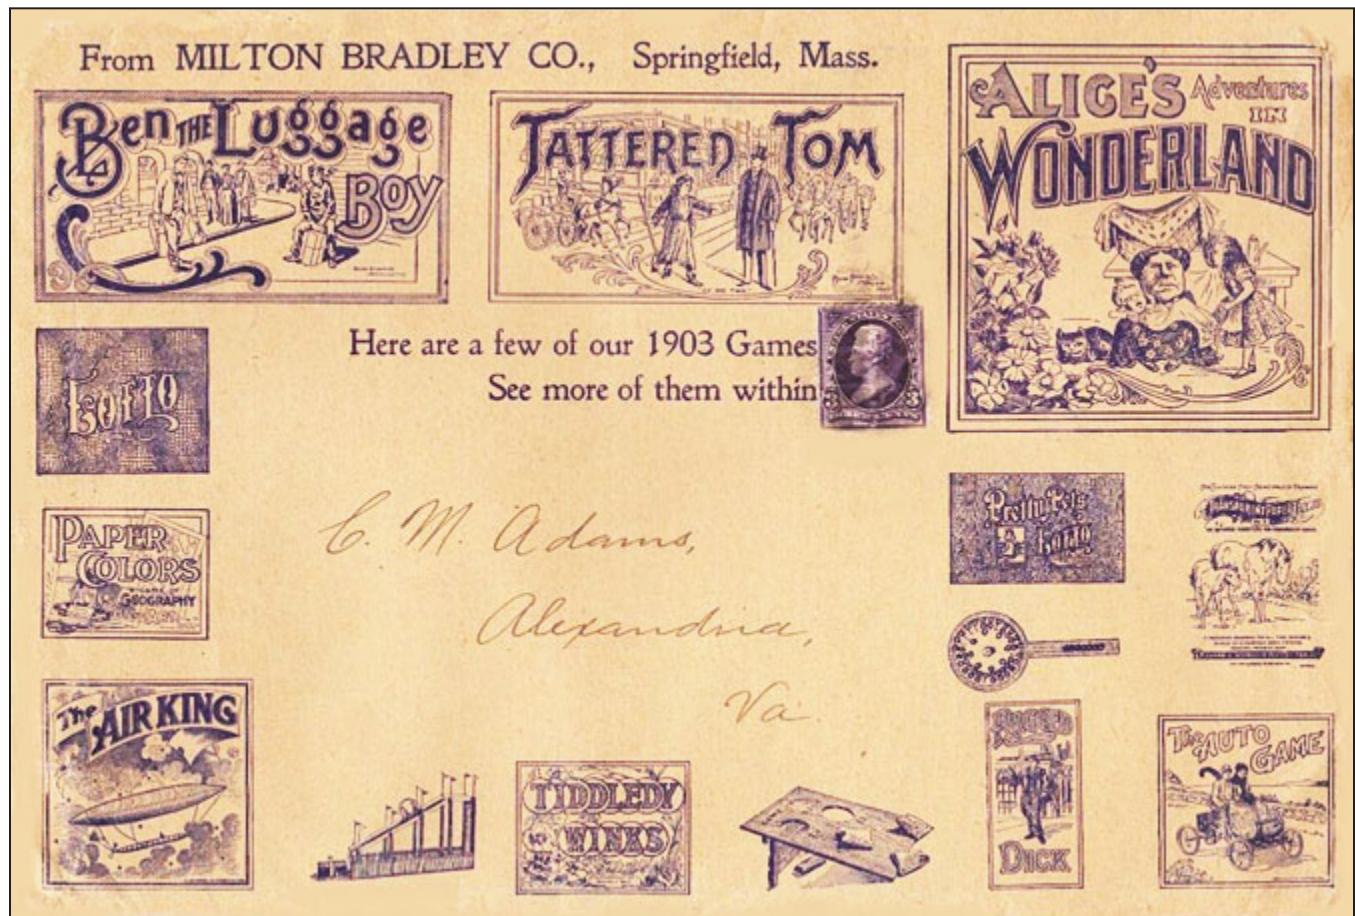 From MILTON BRADLEY CO., Springfield, Mass.
Ben THE Luggage
Boy
TATTERED TOM
ALICE'S Adventures
IN
WONDERLAND
Here are a few of our 1903 Games
See more of them within
3 3
Lotto
C. M. Adams,
Alexandria,
Va.
PAPER
COLORS
GEOGRAPHY
Pretty Pets
Lotto
The AIR KING
TIDDLEDY
WINKS
RAGGED
DICK
The AUTO
GAME